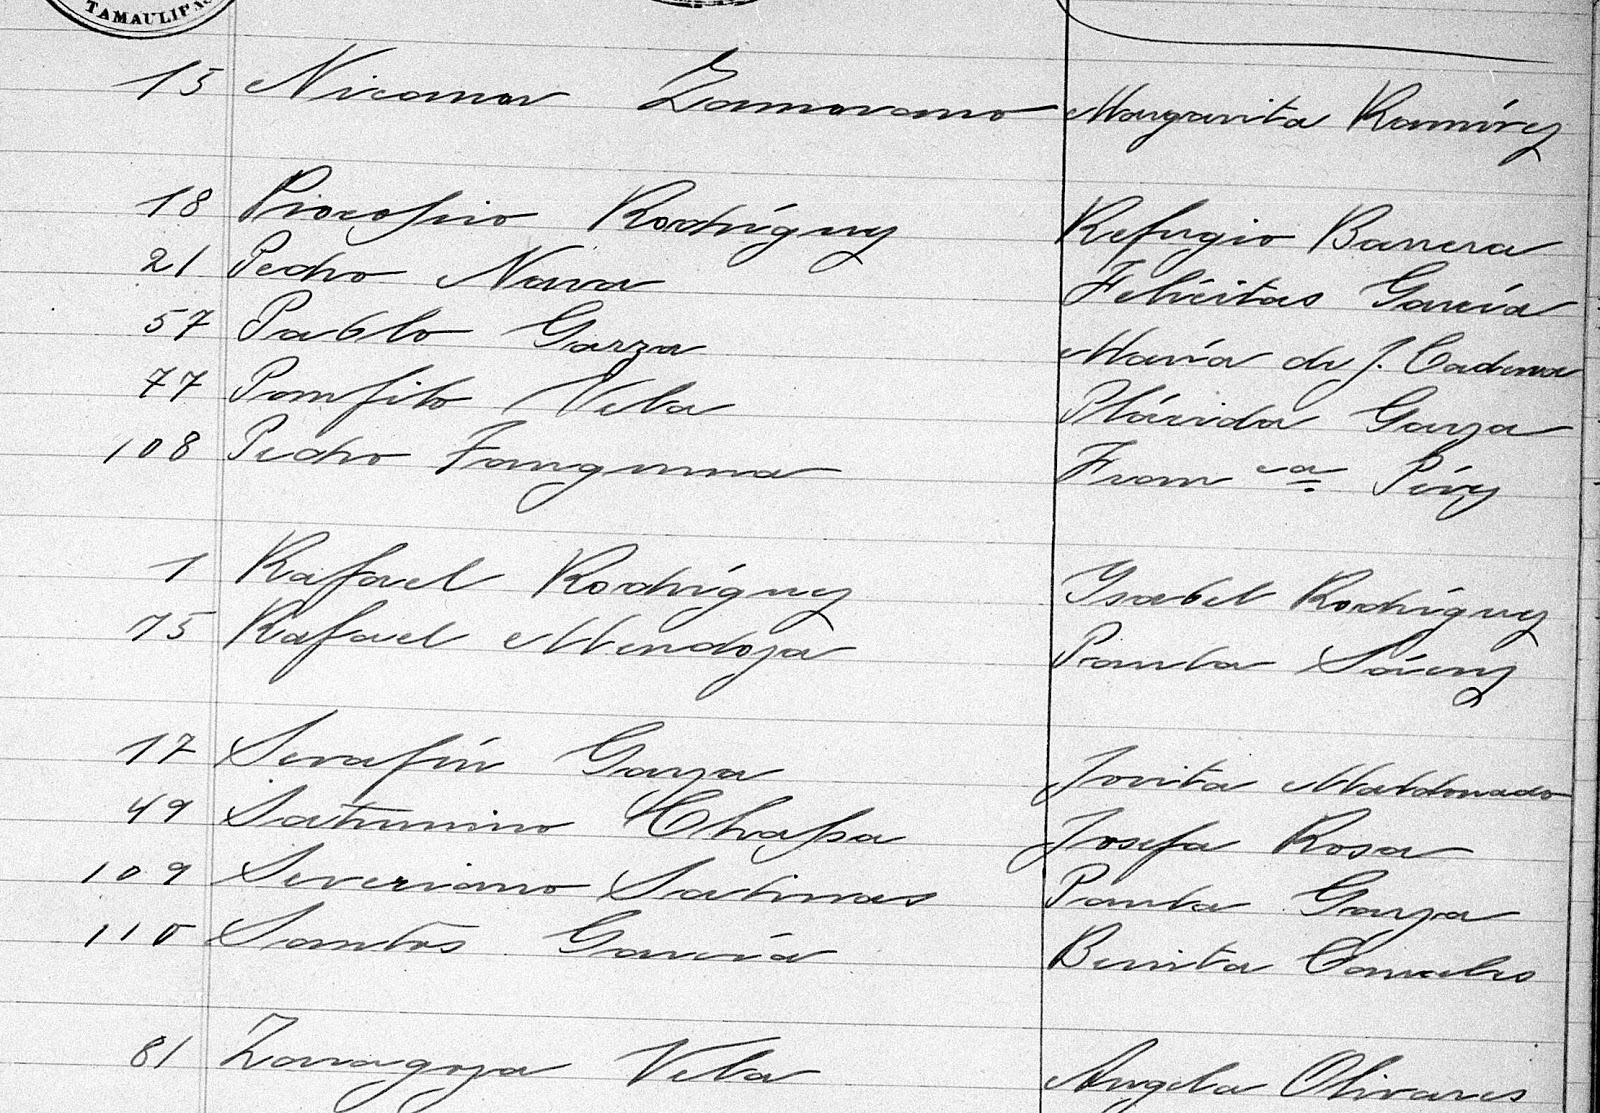 TAMAULIPAS
15 Nicanor Zamorano Margarita Ramírez
18 Procopio Rodríguez Refugio Barrera
21 Pedro Nava Felícitas García
57 Pablo Garza María de J. Cadena
77 Pompilo Vela Plácida Garza
108 Pedro Fran ca Pérez
1 Rafael Rodríguez Ysabel Rodríguez
75 Rafael Mendoza Paula Sáenz
17 Serafín Garza Jovita Maldonado
49 Saturnino Chapa Josefa Rosa
109 Severiano Salinas Paula Garza
110 Santos García Benita Canales
81 Zaragoza Vela Angela Olivares